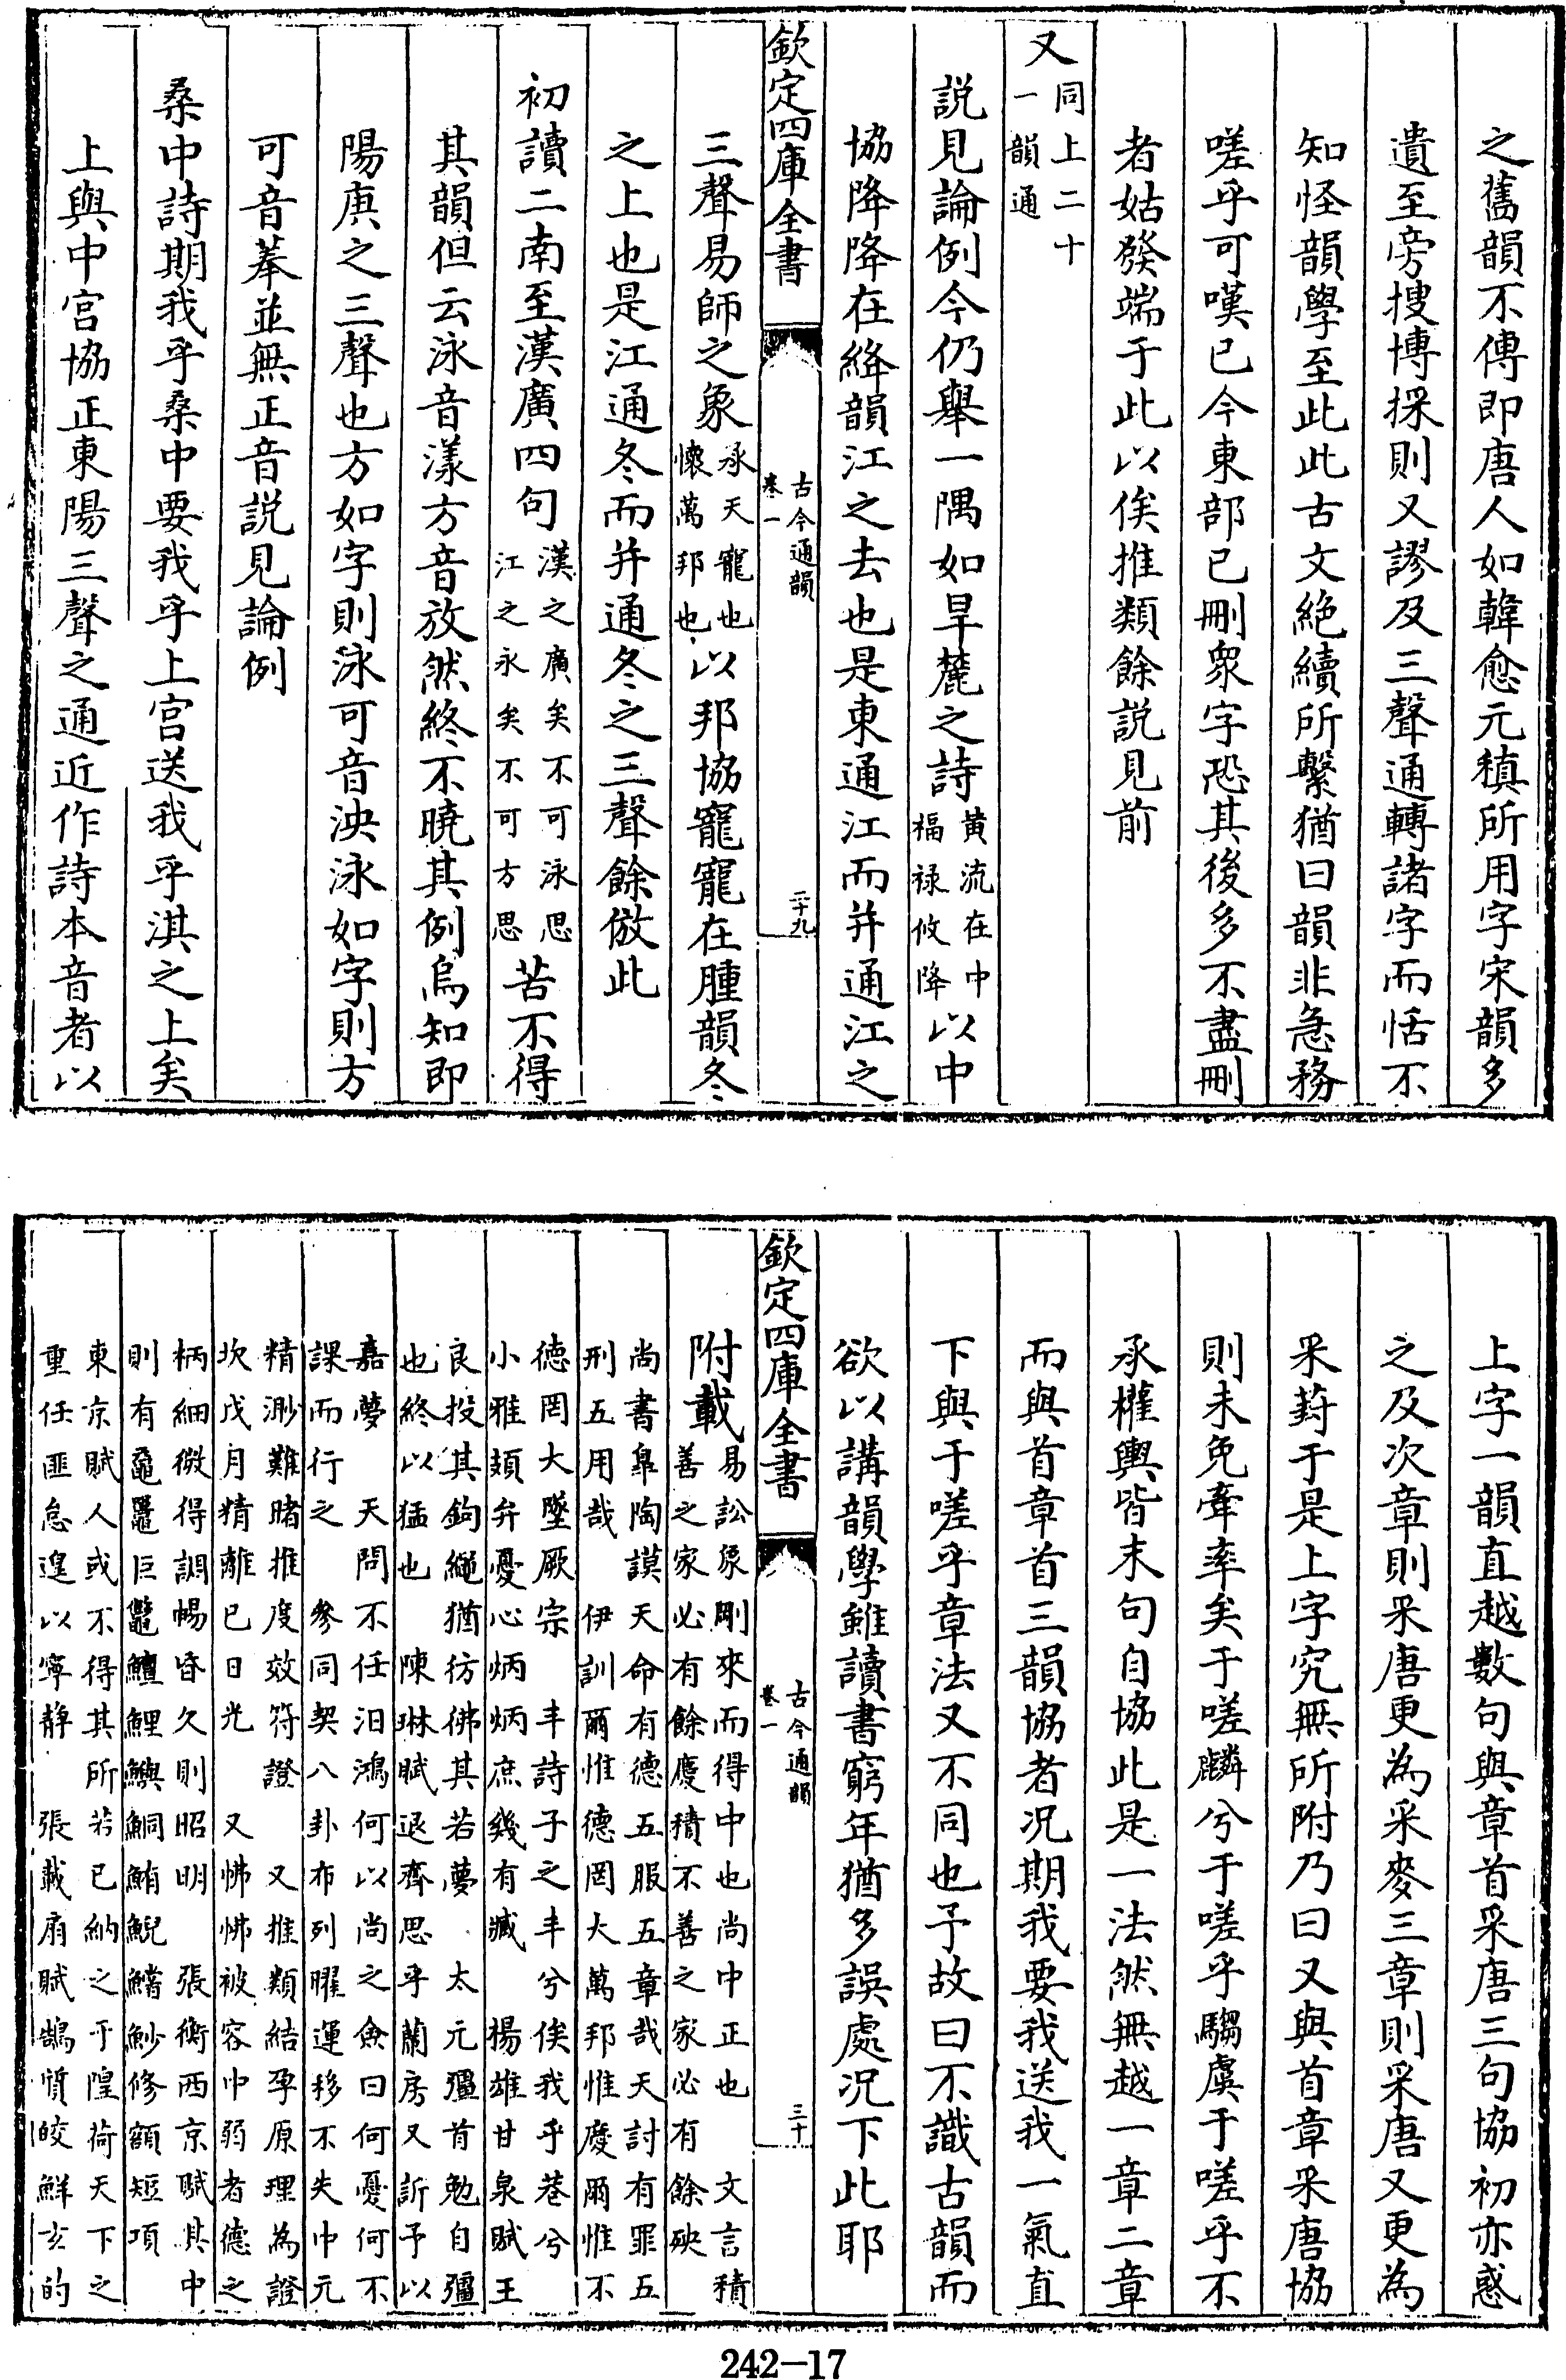 之舊韻不傳即唐人如韓愈元稹所用字宋韻多
遺至旁搜博採則又謬及三聲通轉諸字而恬不
知怪韻學至此此古文絶續所繫猶曰韻非急務
嗟乎可嘆已今東部已刪衆字恐其後多不盡刪
者姑發端于此以俟推類餘説見前
又同上二十一韻通
説見論例今仍舉一隅如旱麓之詩黄流在中福祿攸降以中
協降降在絳韻江之去也是東通江而并通江之
欽定四庫全書
古今通韻
卷一
二十九
三聲易師之象承天寵也懷萬邦也以邦協寵寵在腫韻冬
之上也是江通冬而并通冬之三聲餘倣此
初讀二南至漢廣四句漢之廣矣不可泳思江之永矣不可方思苦不得
其韻但云泳音漾方音放然終不曉其例烏知即
陽庚之三聲也方如字則泳可音泱泳如字則方
可音蓁並無正音説見論例
桑中詩期我乎桑中要我乎上宫送我乎淇之上矣
上與中宫協正東陽三聲之通近作詩本音者以
上字一韻直越數句與章首采唐三句協初亦惑
之及次章則采唐更為采麥三章則采唐又更為
采葑于是上字究無所附乃曰又與首章采唐協
則未免牽率矣于嗟麟兮于嗟乎騶虞于嗟乎不
承權輿皆末句自協此是一法然無越一章二章
而與首章首三韻協者况期我要我送我一氣直
下與于嗟乎章法又不同也予故曰不識古韻而
欲以講韻學雖讀書窮年猶多誤處况下此耶
欽定四庫全書
古今通韻
卷一
三十
附載易訟彖剛來而得中也尚中正也 文言積善之家必有餘慶積不善之家必有餘殃
尚書臯陶謨天命有德五服五章哉天討有罪五刑五用哉 伊訓爾惟德罔大萬邦惟慶爾惟不
德罔大墜厥宗 丰詩子之丰兮俟我乎巷兮 小雅頍弁憂心炳炳庶幾有臧 楊雄甘泉賦王
良投其鉤繩猶彷彿其若夢 太元彊首勉自彊也終以猛也 陳琳賦退齊思乎蘭房又訢予以
嘉夢 天問不任汨鴻何以尚之僉曰何憂何不課而行之 參同契八卦布列曜運移不失中元
精渺難睹推度效符證 又推類結孕原理為證坎戊月精離已日光 又怫怫被容中弱者德之
柄細微得調暢昏久則昭明 張衡西京賦其中則有黿鼉巨鼈鱣鯉鱮鮦鮪鯢鱨魦修額短項
東京賦人或不得其所若已納之于隍荷天下之重任匪怠遑以寧静 張載扇賦鵠質皎鮮玄的
242-17